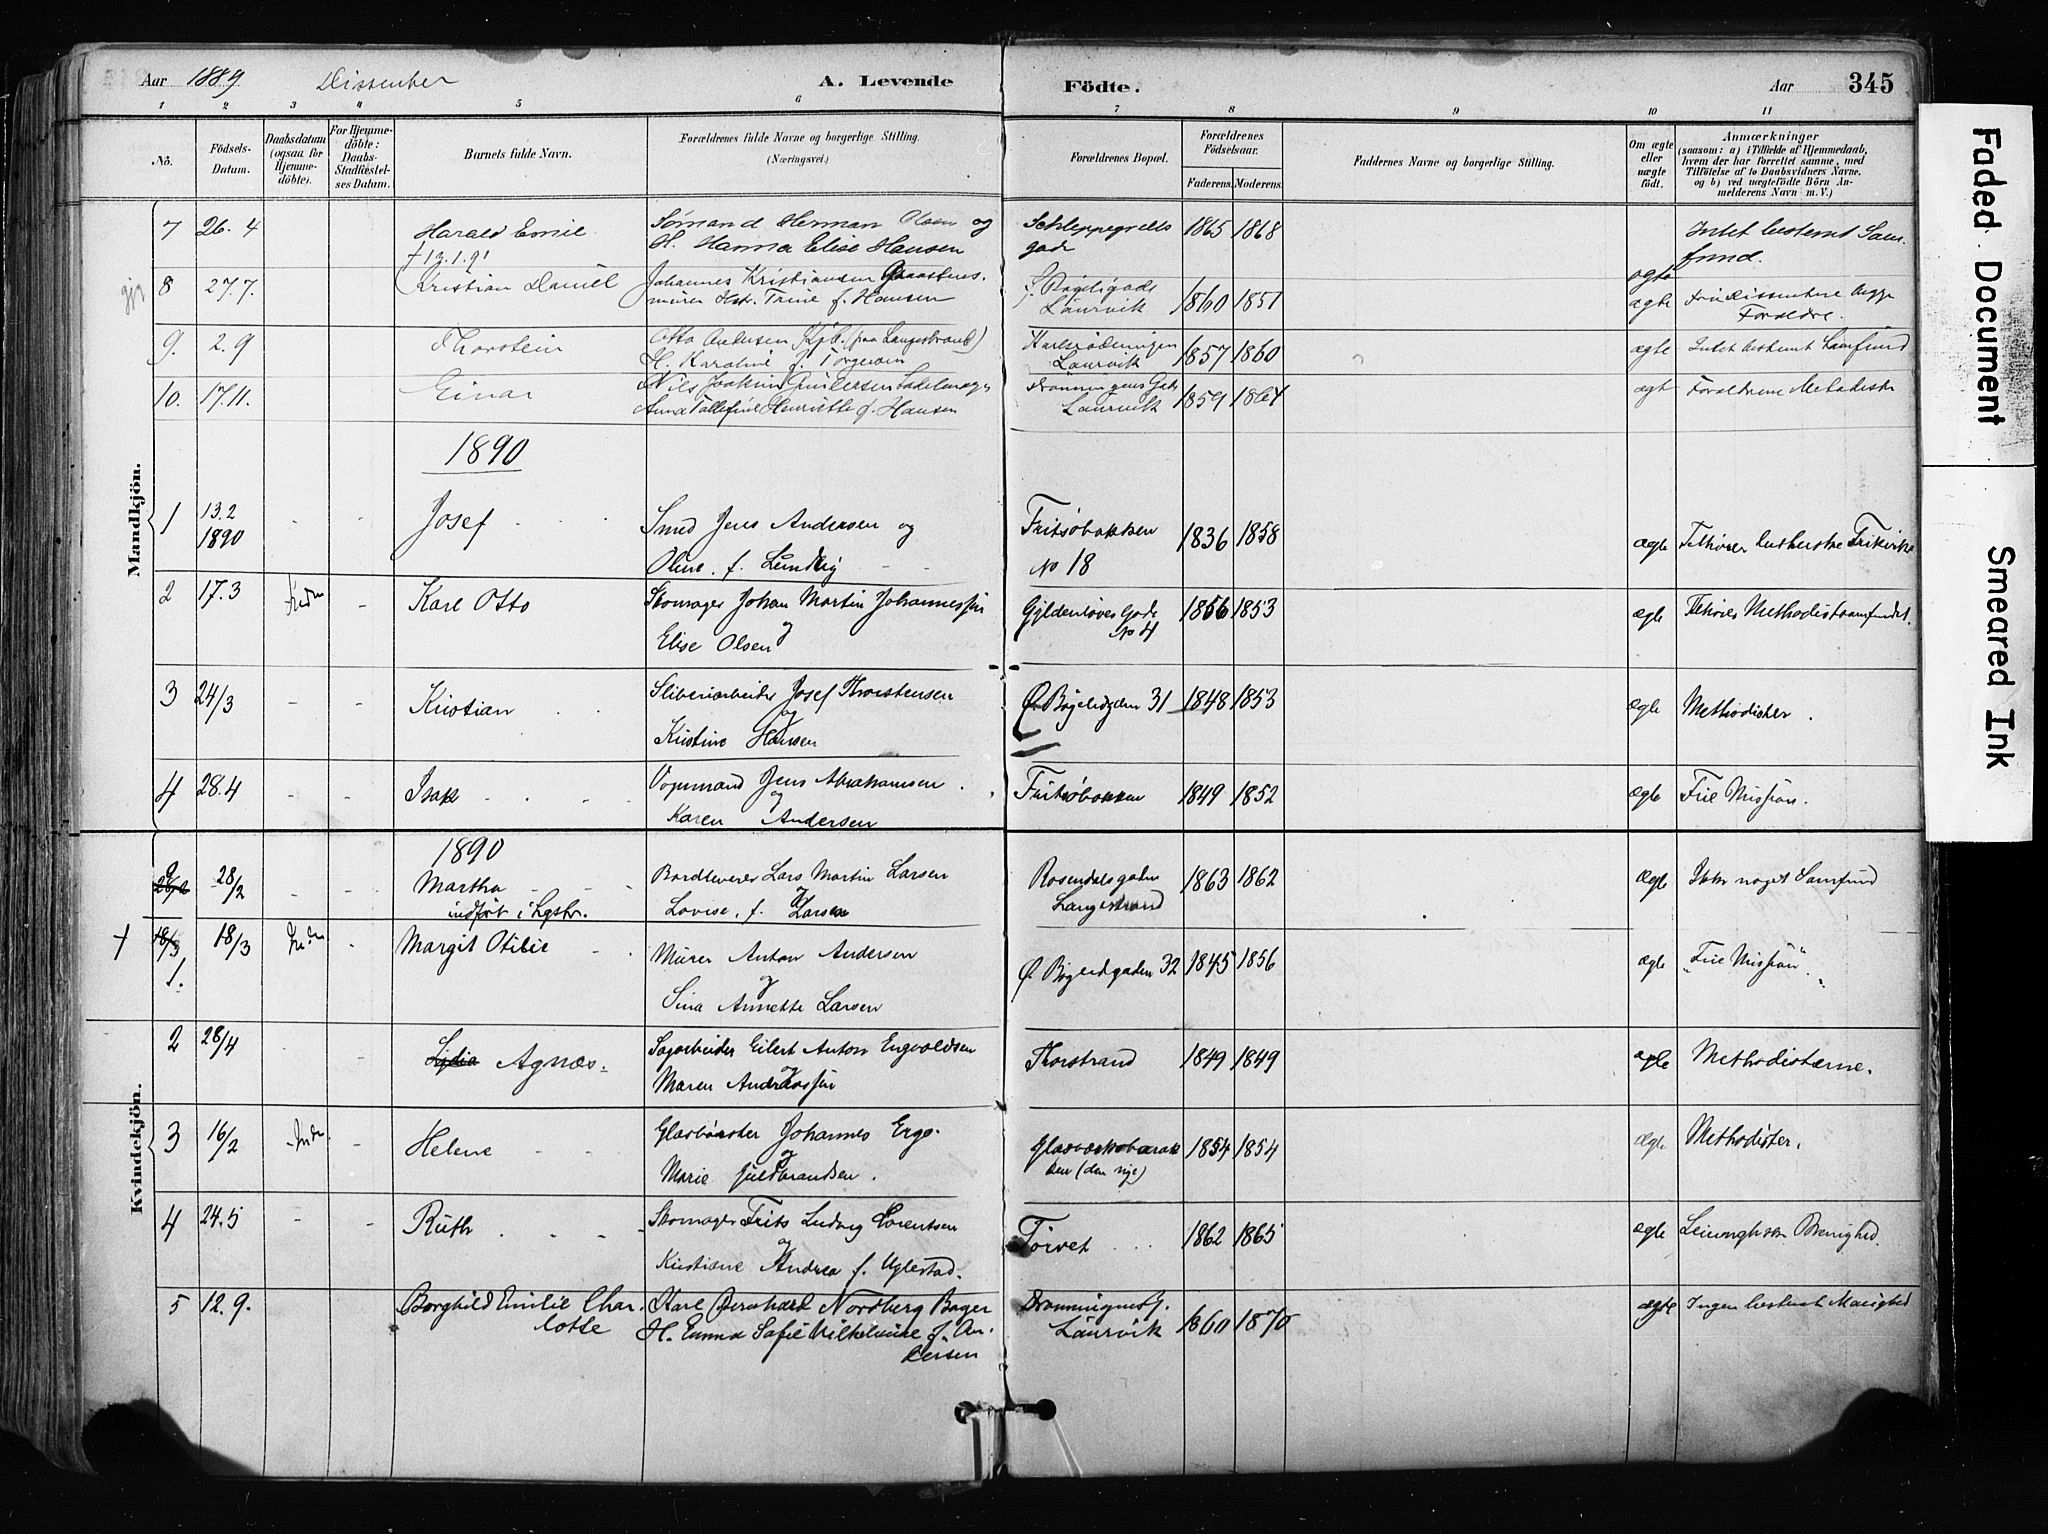 Aar 1889 Dissenter A. Levende Födte. Aar 345
1 2 3 4 5 6 7 8 9 10 11
No. Födsels-Datum. Daabsdatum (ogsaa for Hjemme-döbte). For Hjemme-döbte: Daabs-Stadfæstel-ses Datum. Barnets fulde Navn. Forældrenes fulde Navne og borgerlige Stilling. (Næringsvei.) Forældrenes Bopæl. Forældrenes Födselsaar. Faderens. Moderens. Faddernes Navne og borgerlige Stilling. Om ægte eller uægte födt. Anmærkninger (saasom: a) i Tilfælde af Hjemmedaab, hvem der har forrettet samme, med Tilföielse af to Daabsvidners Navne. og b) ved uægtefödte Börn An-melderens Navn m. V.)
Mandkjön.
7 26.4 Harald Emil Sømand Herman Olsen og Schleppegrells 1865 1868 Intet bestemt Sam-
† 13.1.91 H. Hanna Elise Hansen gade ægte fund.
8 27.7. Kristian Daniel Johannes Kristiansen Graastens- Laurvik 1860 1851 ægte
murer Hst. Trine f. Hansen Forældre.
9. 2.9 Thorstein Otto Andersen (paa Langestrand) Laurvik 1857 1860 ægte Intet bestemt Samfund
H. Karoline f. Torgersen
10. 17.11. Einar Nils Joakim Gundersen Sadelmager Dronningens Gade 1859 1864 ægt Forældrene Metodister
Anna Tollefine Henriette f. Hansen Laurvik
1890
1 13.2 1890 Josef Smed Jens Andersen og Fritsøbakken 1836 1858 ægte Tilhører lutherske Frikirke
Oline f. Lundby No 18
2 17.3 Karl Otto Skomager Johan Martin Johannessen Gyldenløves Gade 1856 1853 ægte Tilhører Methodistsamfundet.
og Elise Olsen No 4
3 24/3 Kristian Sliberiarbeider Josef Thorstensen Ø. Bøgelidgden 31 1848 1853 ægte Methodister.
og Kristine Hansen
4 28.4 Isak Vognmand Jens Abrahamsen Fritsøbakken 1849 1852 ægte Frie Mission.
og Karen Andersen
Kvindekjön.
1890
28/2 Martha Lars Martin Larsen Rosendalsgaden 1863 1862 ægte Ikke noget Samfund
indført i Lgstr. og Lovise f. Larsen Langestrand
† 18/3 18/3 Margit Otilie Murer Anton Andersen Ø. Bøgelidgaden 32 1845 1856 ægte "Frie Mission".
1. og Sina Annette Larsen
2 28/4 Lydia Agnæs Sagarbeider Eilert Anton Engvoldsen Thorstrand 1849 1849 ægte Methodisterne.
og Maren Andreassen
3 16/2 Helene Johannes Ergo. Glasværksbarak 1854 1854 ægte Methodister.
og Marie Guldbrandsen. ken (den nye)
4 24.5 Ruth Skomager Frits Ludvig Lorentsen Torvet 1862 1865 ægte
og Kristiane Andrea f. Uglestad.
5 12.9. Borghild Emilie Char- Karl Bernhard Nordberg Bager Dronningensg. 1860 1870 ægte Ingen bestemt Menighed
lotte H. Emma Sofie Vilhelmine f. An- Laurvik
dersen
Faded Document
Smeared Ink